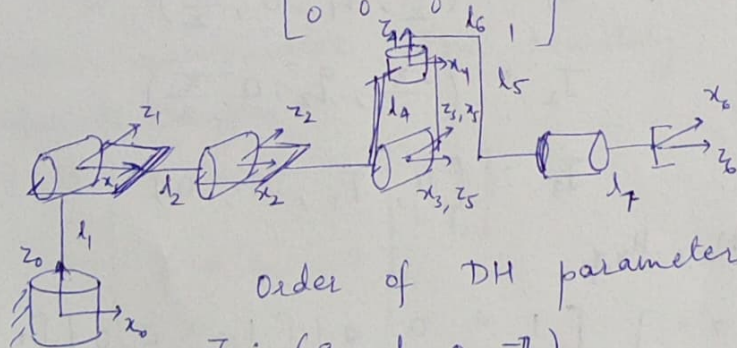 0 0 0 1
z₄ l₆
x₄ l₅
l₄ z₃, x₅
z₁ z₂ x₆
x₁ l₂ x₂ x₃, z₅ l₇ z₆
l₁
z₀
x₀
Order of DH parameter